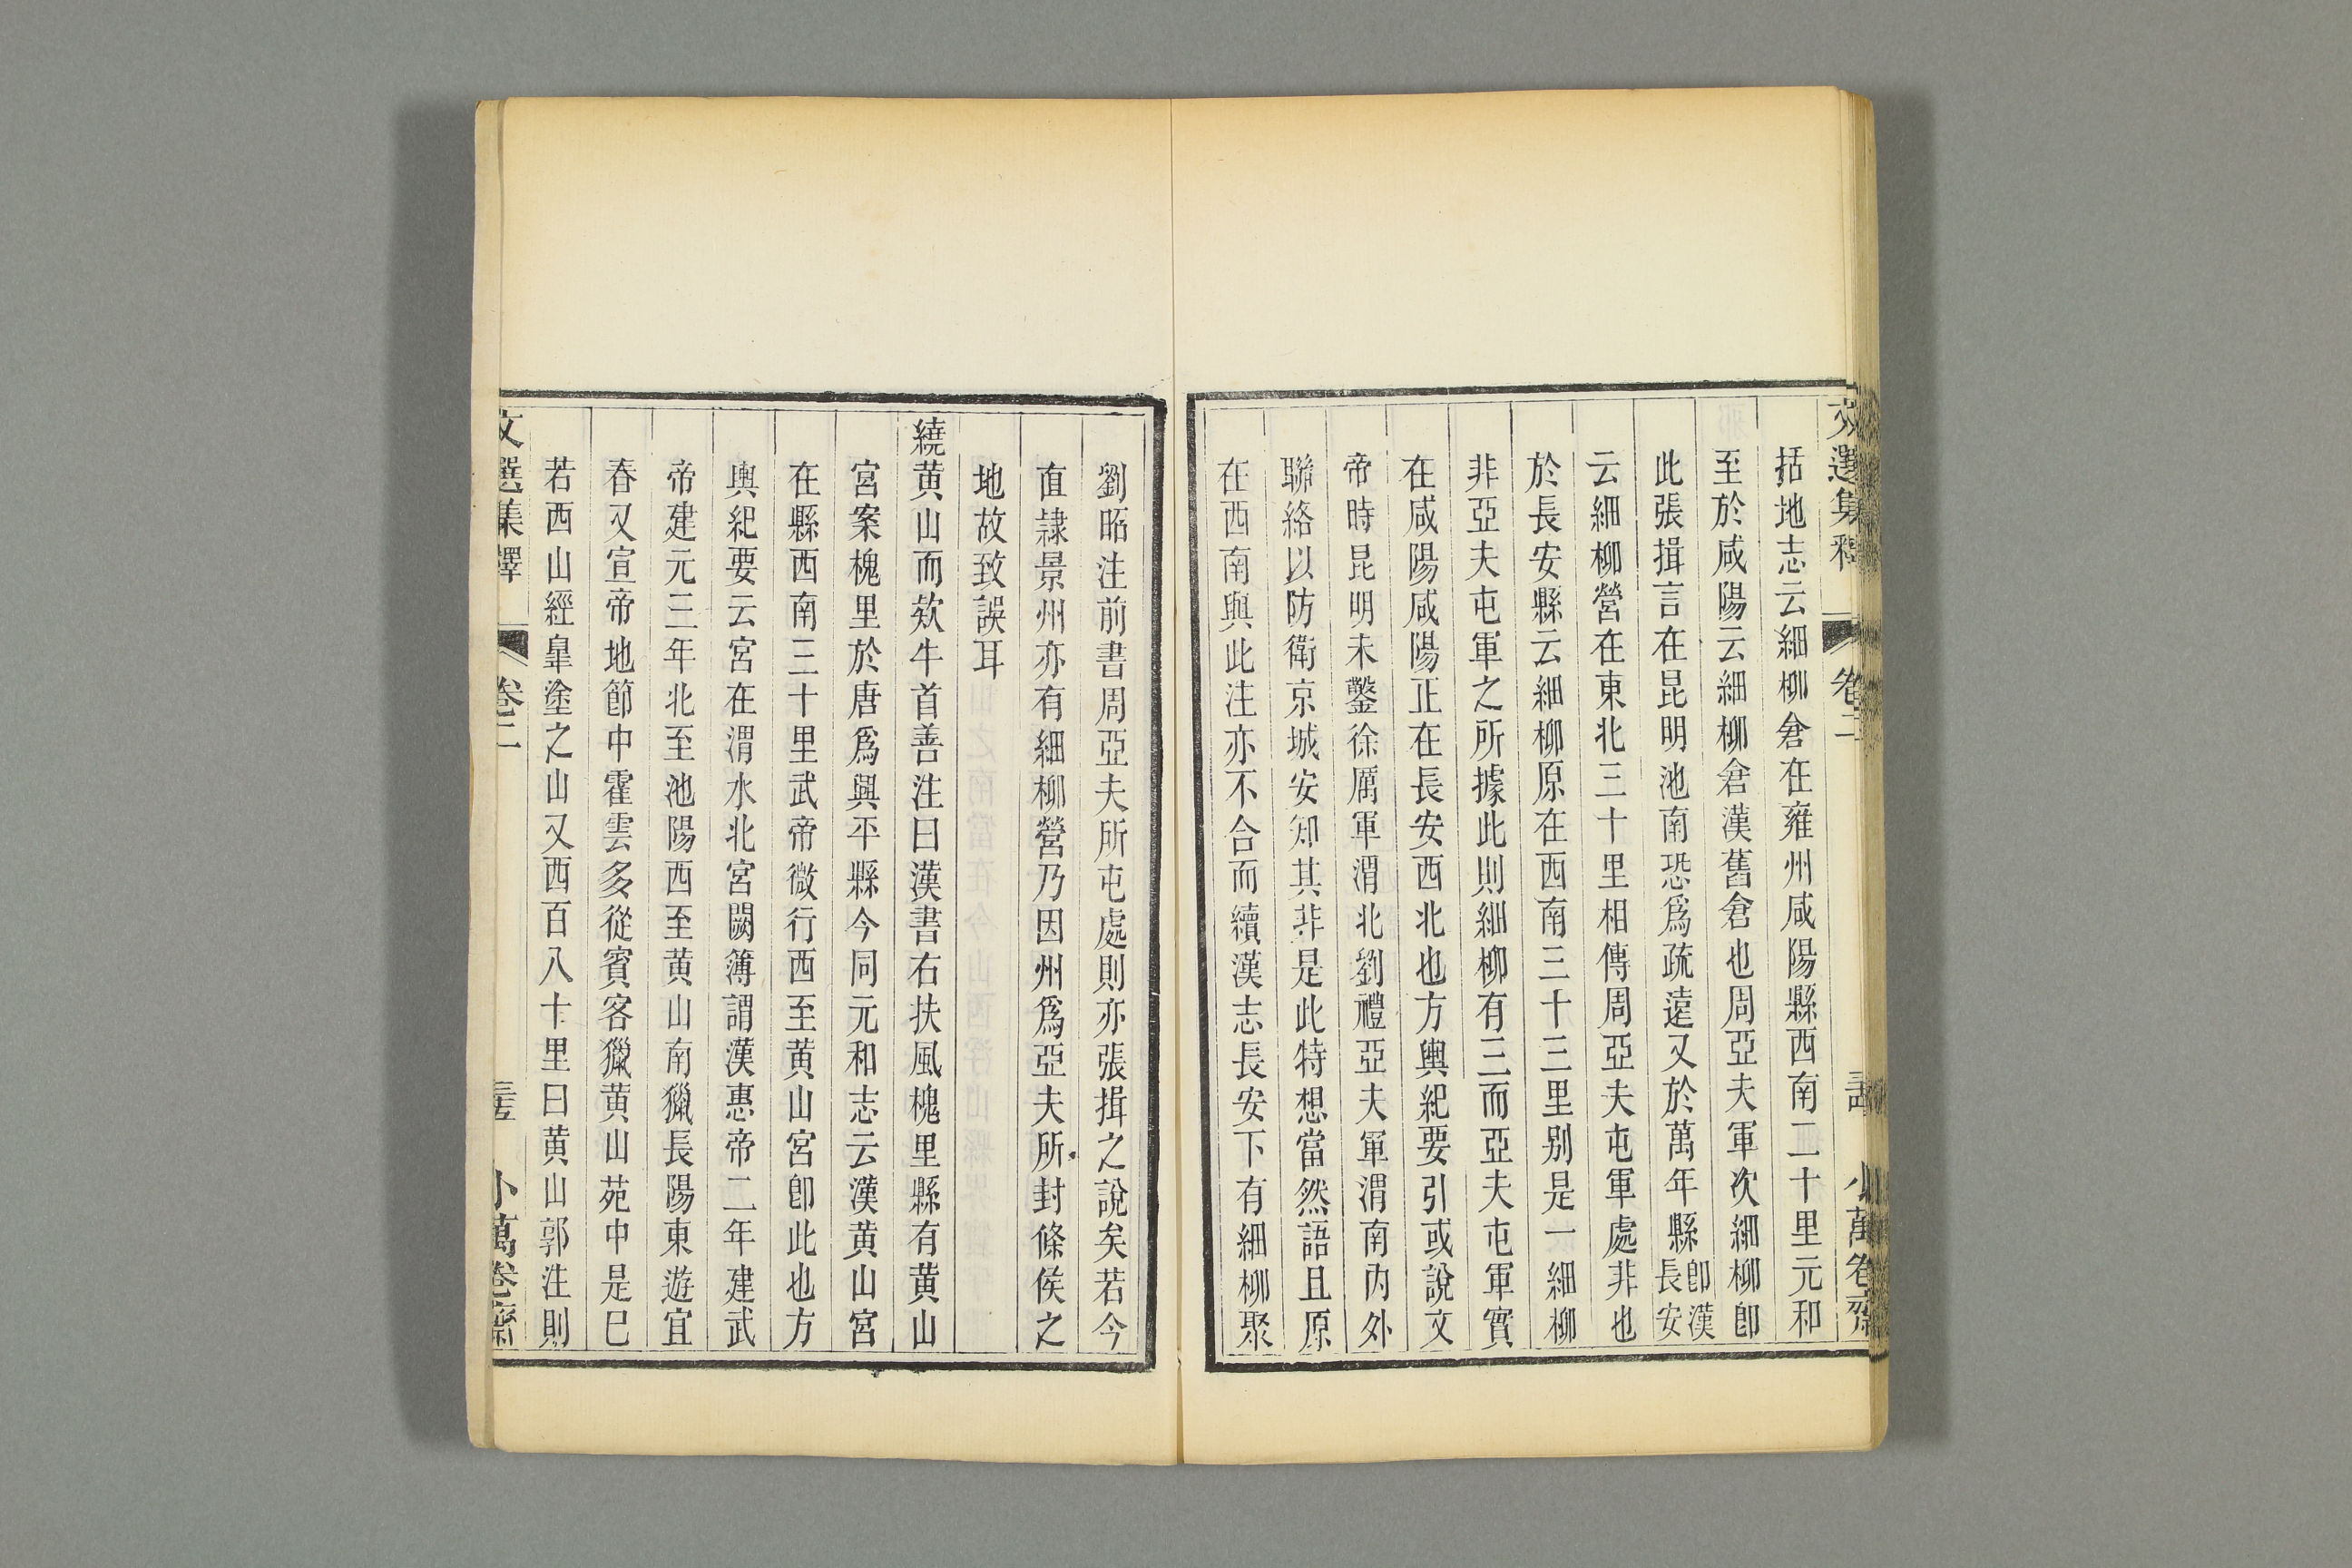 文選集釋 卷二 小萬卷齋
括地志云細柳倉在雍州咸陽縣西南二十里元和
至於咸陽云細柳倉漢舊倉也周亞夫軍次細柳卽
此張揖言在昆明池南恐爲疏遠又於萬年縣卽漢長安
云細柳營在東北三十里相傳周亞夫屯軍處非也
於長安縣云細柳原在西南三十三里别是一細柳
非亞夫屯軍之所據此則細柳有三而亞夫屯軍實
在咸陽咸陽正在長安西北也方輿紀要引或說文
帝時昆明未鑿徐厲軍渭北劉禮亞夫軍渭南內外
聯絡以防衛京城安知其非是此特想當然語且原
在西南與此注亦不合而續漢志長安下有細柳聚
劉昭注前書周亞夫所屯處則亦張揖之說矣若今
直隸景州亦有細柳營乃因州爲亞夫所封條侯之
地故致誤耳
繞黄山而欵牛首善注曰漢書右扶風槐里縣有黄山
宮案槐里於唐爲興平縣今同元和志云漢黄山宮
在縣西南三十里武帝微行西至黄山宮卽此也方
輿紀要云宮在渭水北宮闕簿謂漢惠帝二年建武
帝建元三年北至池陽西至黄山南獵長陽東遊宜
春又宣帝地節中霍雲多從賓客獵黄山苑中是巳
若西山經臯塗之山又西百八十里曰黄山郭注則
文選集釋 卷二 小萬卷齋